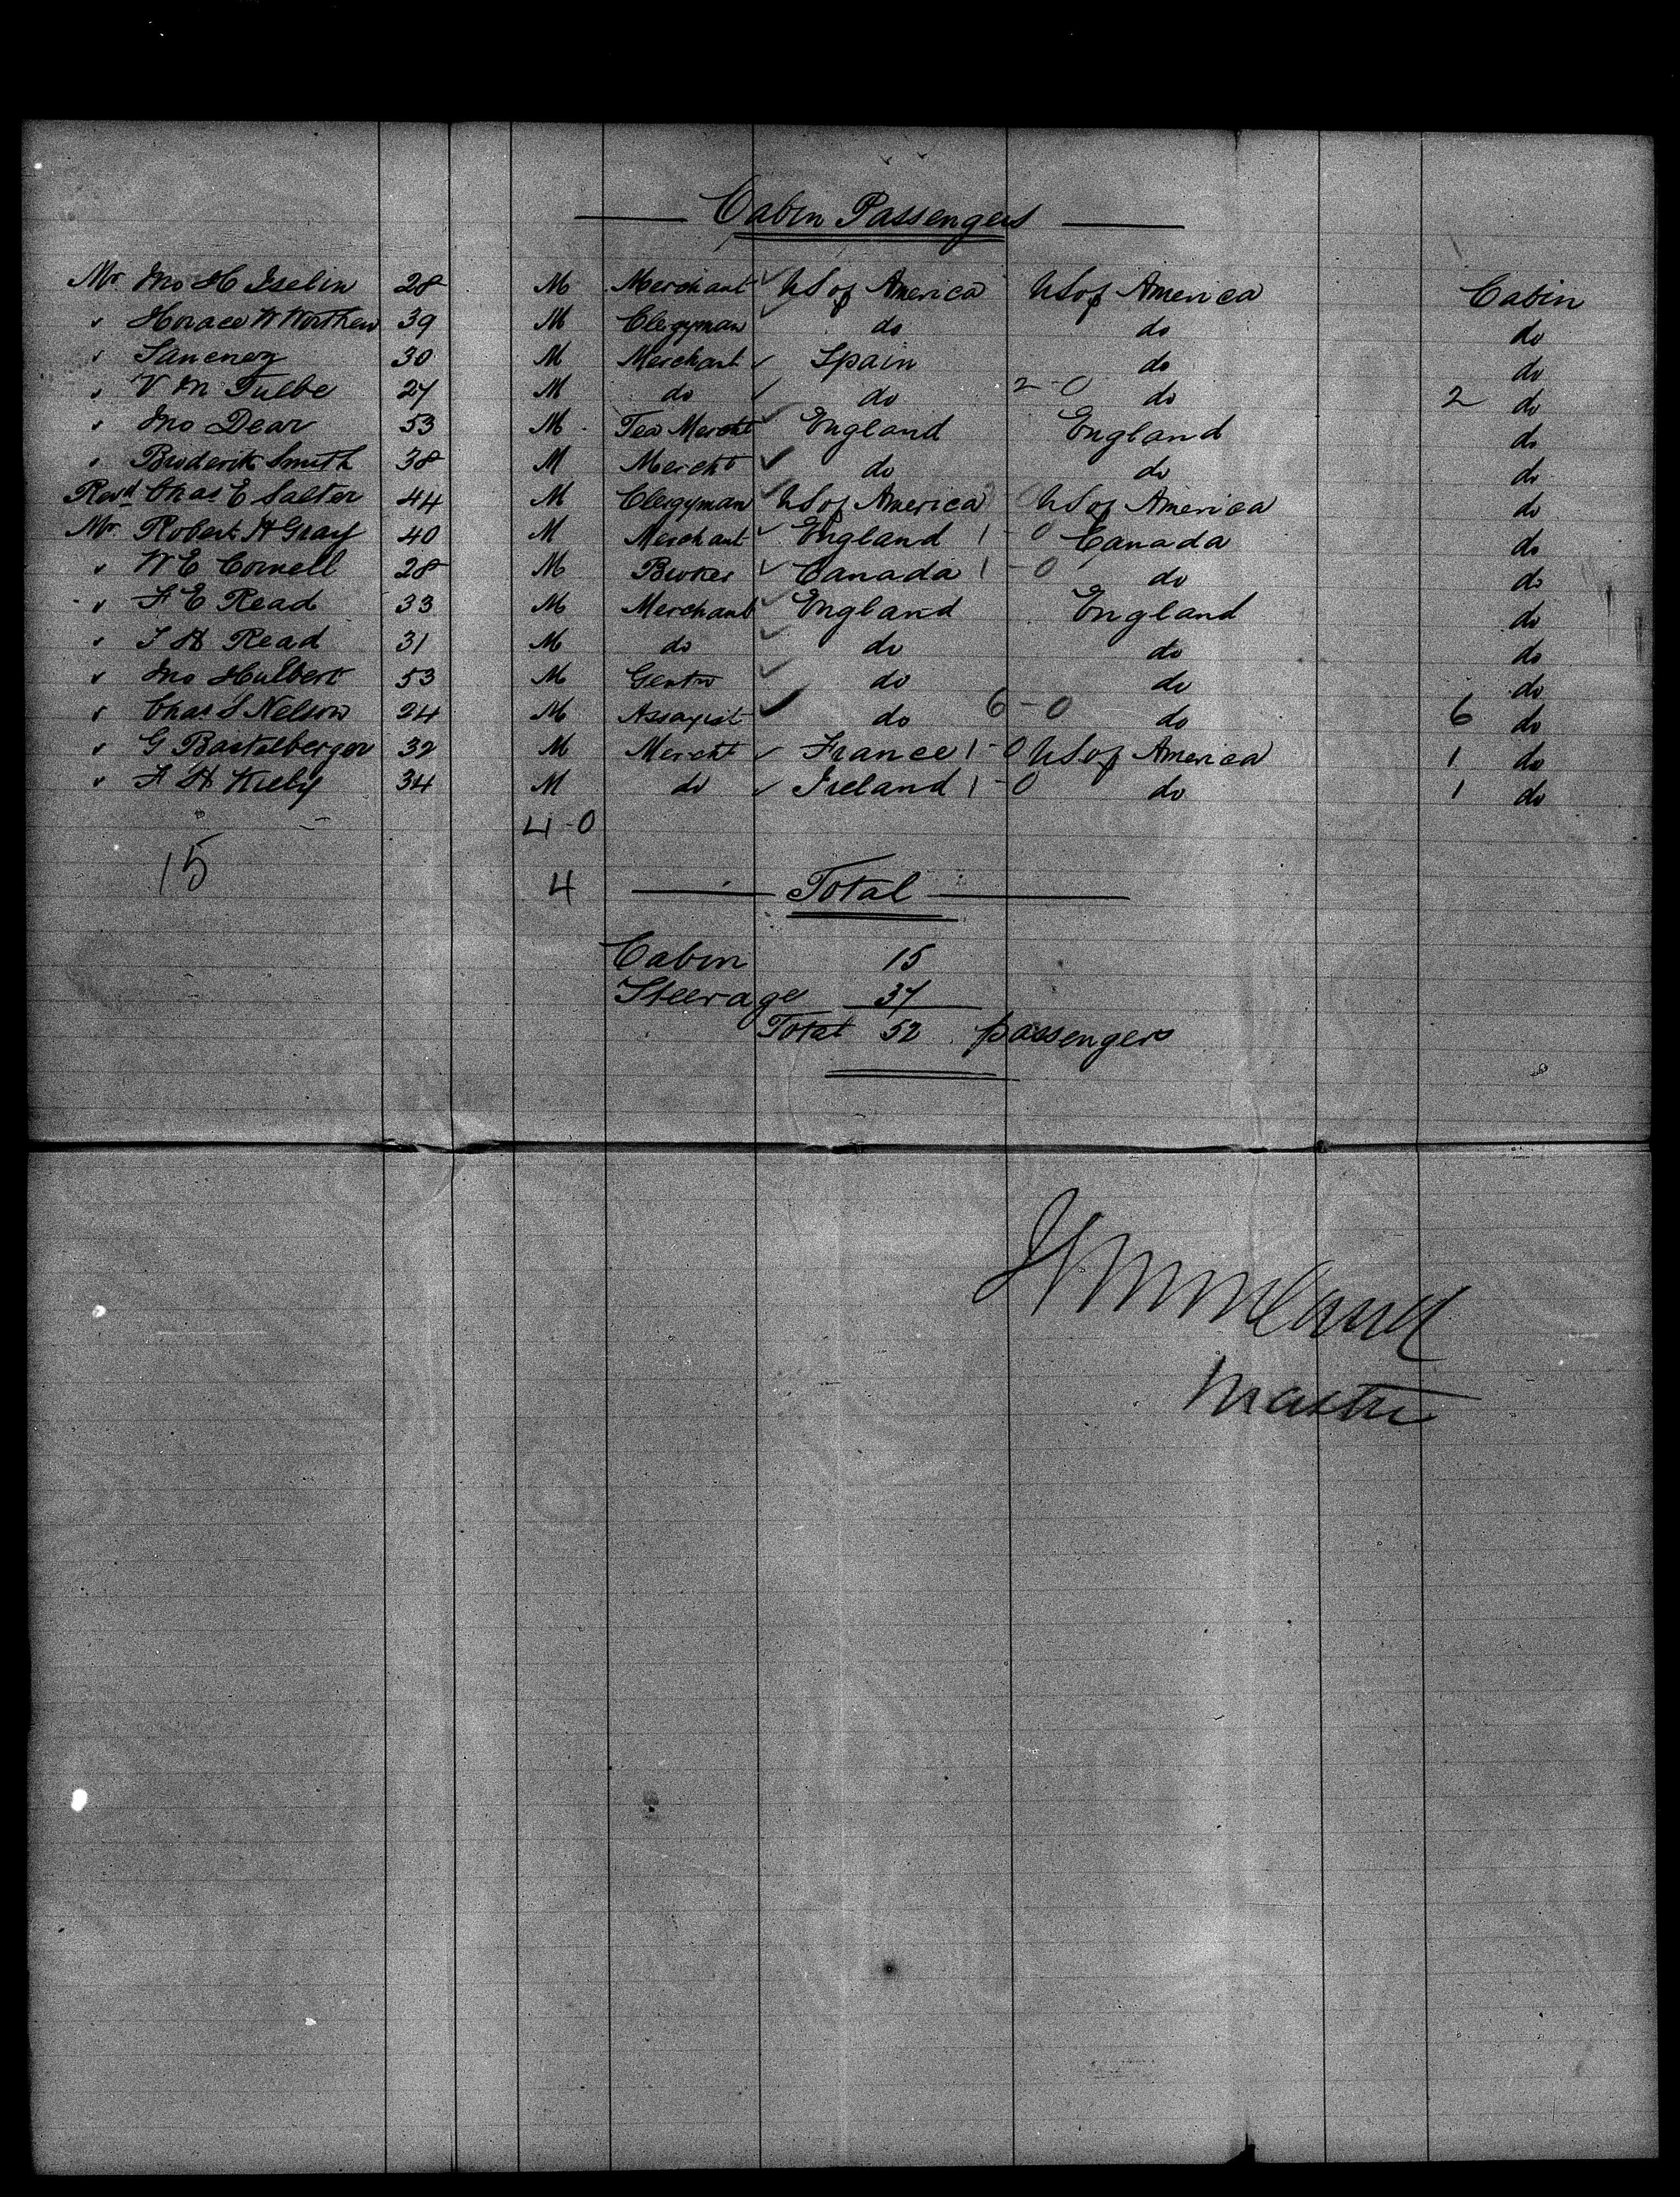 Cabin Passengers
Mr Jno H Iselin 28 M Merchant US of America US of America Cabin
" Horace W Worthen 39 M Clergyman do do do
" 30 M Merchant Spain do do
" V M Tulbe 27 M do do 2-0 do 2 do
" Jno Dear 53 M Tea Mercht England England do
" Broderick Smith 38 M Mercht do do do
Revd Chas E Salter 44 M Clergyman US of America US of America do
Mr Robert H Gray 40 M Merchant England 1-0 Canada do
" W E Cornell 28 M Broker Canada 1-0 do do
" F E Read 33 M Merchant England England do
" T H Read 31 M do do do do
" Jno Hulbert 53 M do do do
" Chas S Nelson 24 M Assayist do 6-0 do 6 do
" G Bastelberger 32 M Mercht France 1-0 US of America 1 do
" 34 M do Ireland 1-0 do 1 do
4-0
15 4 Total
Cabin 15
Steerage 37
Total 52 passengers
Master